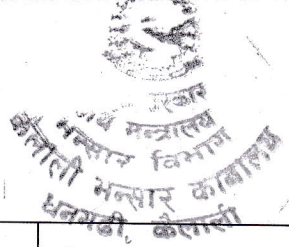 सरकार
मन्त्रालय
भन्सार विभाग
कैलाली भन्सार कार्यालय
धनगढी, कैलाली